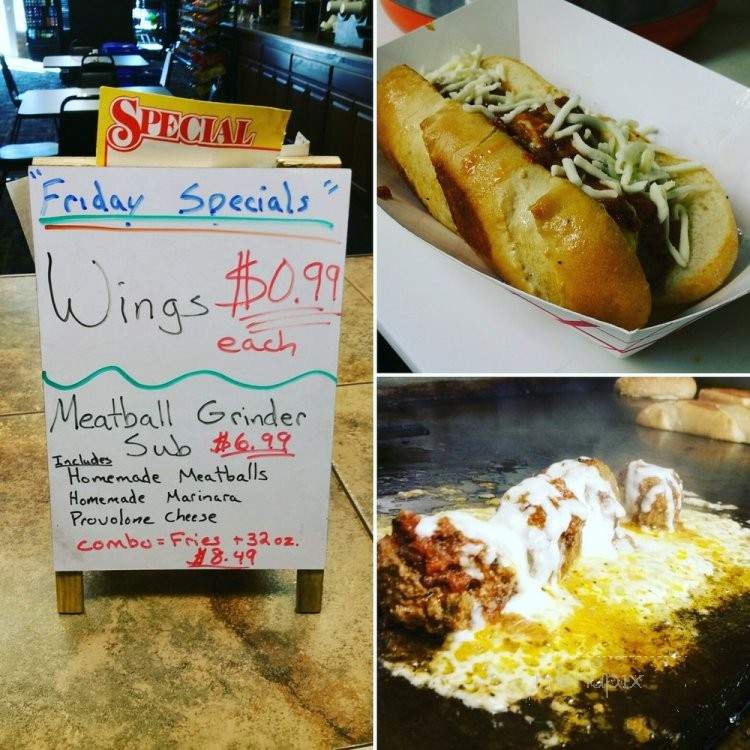 SPECIAL
"Friday Specials"
Wings $0.99
each
Meatball Grinder
Sub $6.99
Includes
Homemade Meatballs
Homemade Marinara
Provolone Cheese
combo = Fries + 32 oz.
$8.49